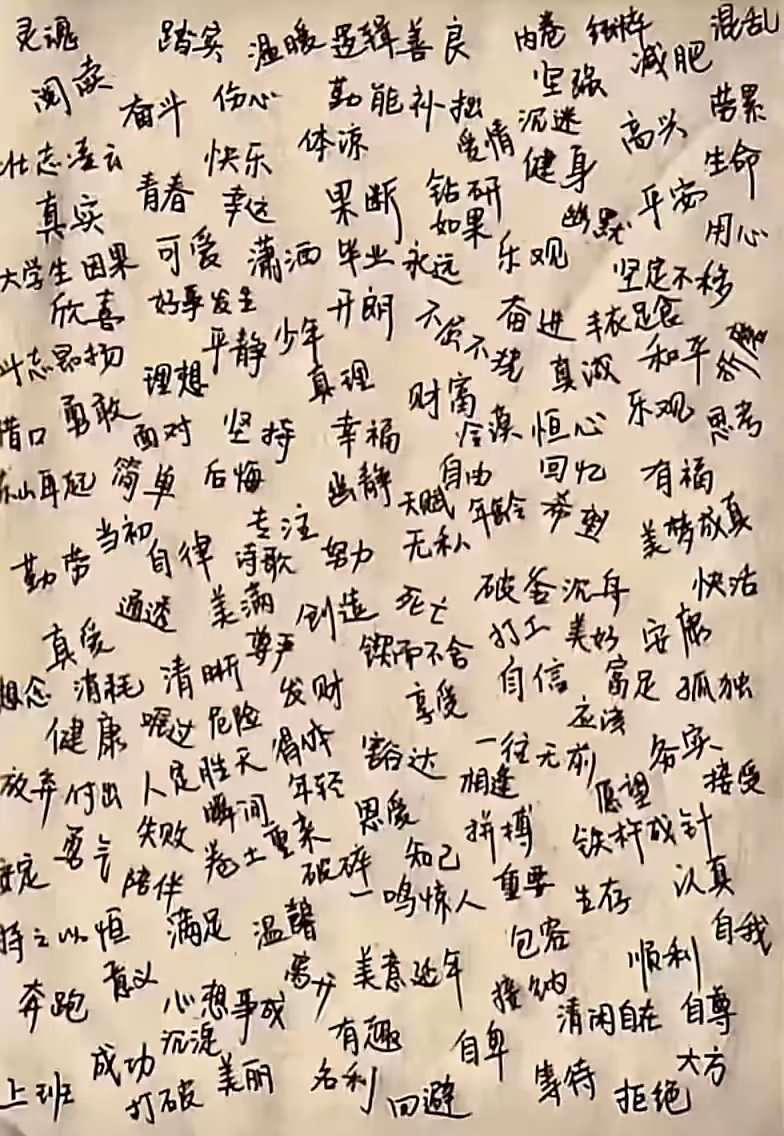 灵魂 踏实 温暖 逻辑 善良 内卷 纯粹 混乱
阅读 奋斗 伤心 勤能补拙 坚强 减肥
壮志凌云 快乐 体凉 爱情 沉迷 健身 高兴 劳累
真实 青春 幸运 果断 钻研 如果 幽默 平安 生命
大学生 因果 可爱 潇洒 毕业 永远 乐观 坚定不移 用心
欣喜 好事发生 开朗 不屈不挠 奋进 丰衣足食
斗志昂扬 理想 平静 少年 真理 财富 真诚 和平
借口 勇敢 面对 坚持 幸福 冷漠 恒心 乐观 思考
东山再起 简单 后悔 幽静 自由 回忆 有福
勤劳 当初 自律 专注 诗歌 努力 天赋 无私 年龄 美梦成真
真爱 通透 美满 创造 死亡 破釜沉舟 快活
想念 消耗 清晰 尊严 锲而不舍 打工 美好 安康
健康 嘴边 危险 发财 享受 自信 富足 孤独
放弃 付出 人定胜天 得体 豁达 一往无前 应该 务实
安定 勇气 失败 瞬间 年轻 恩爱 相逢 愿望 接受
陪伴 卷土重来 破碎 知己 拼搏 铁杵成针
持之以恒 满足 温馨 一鸣惊人 重要 生存 认真
奔跑 意义 心想事成 离开 美意延年 包容 接纳 顺利 自我
上班 成功 沉淀 有趣 自卑 清闲自在 自尊
打破 美丽 名利 回避 等待 拒绝 大方